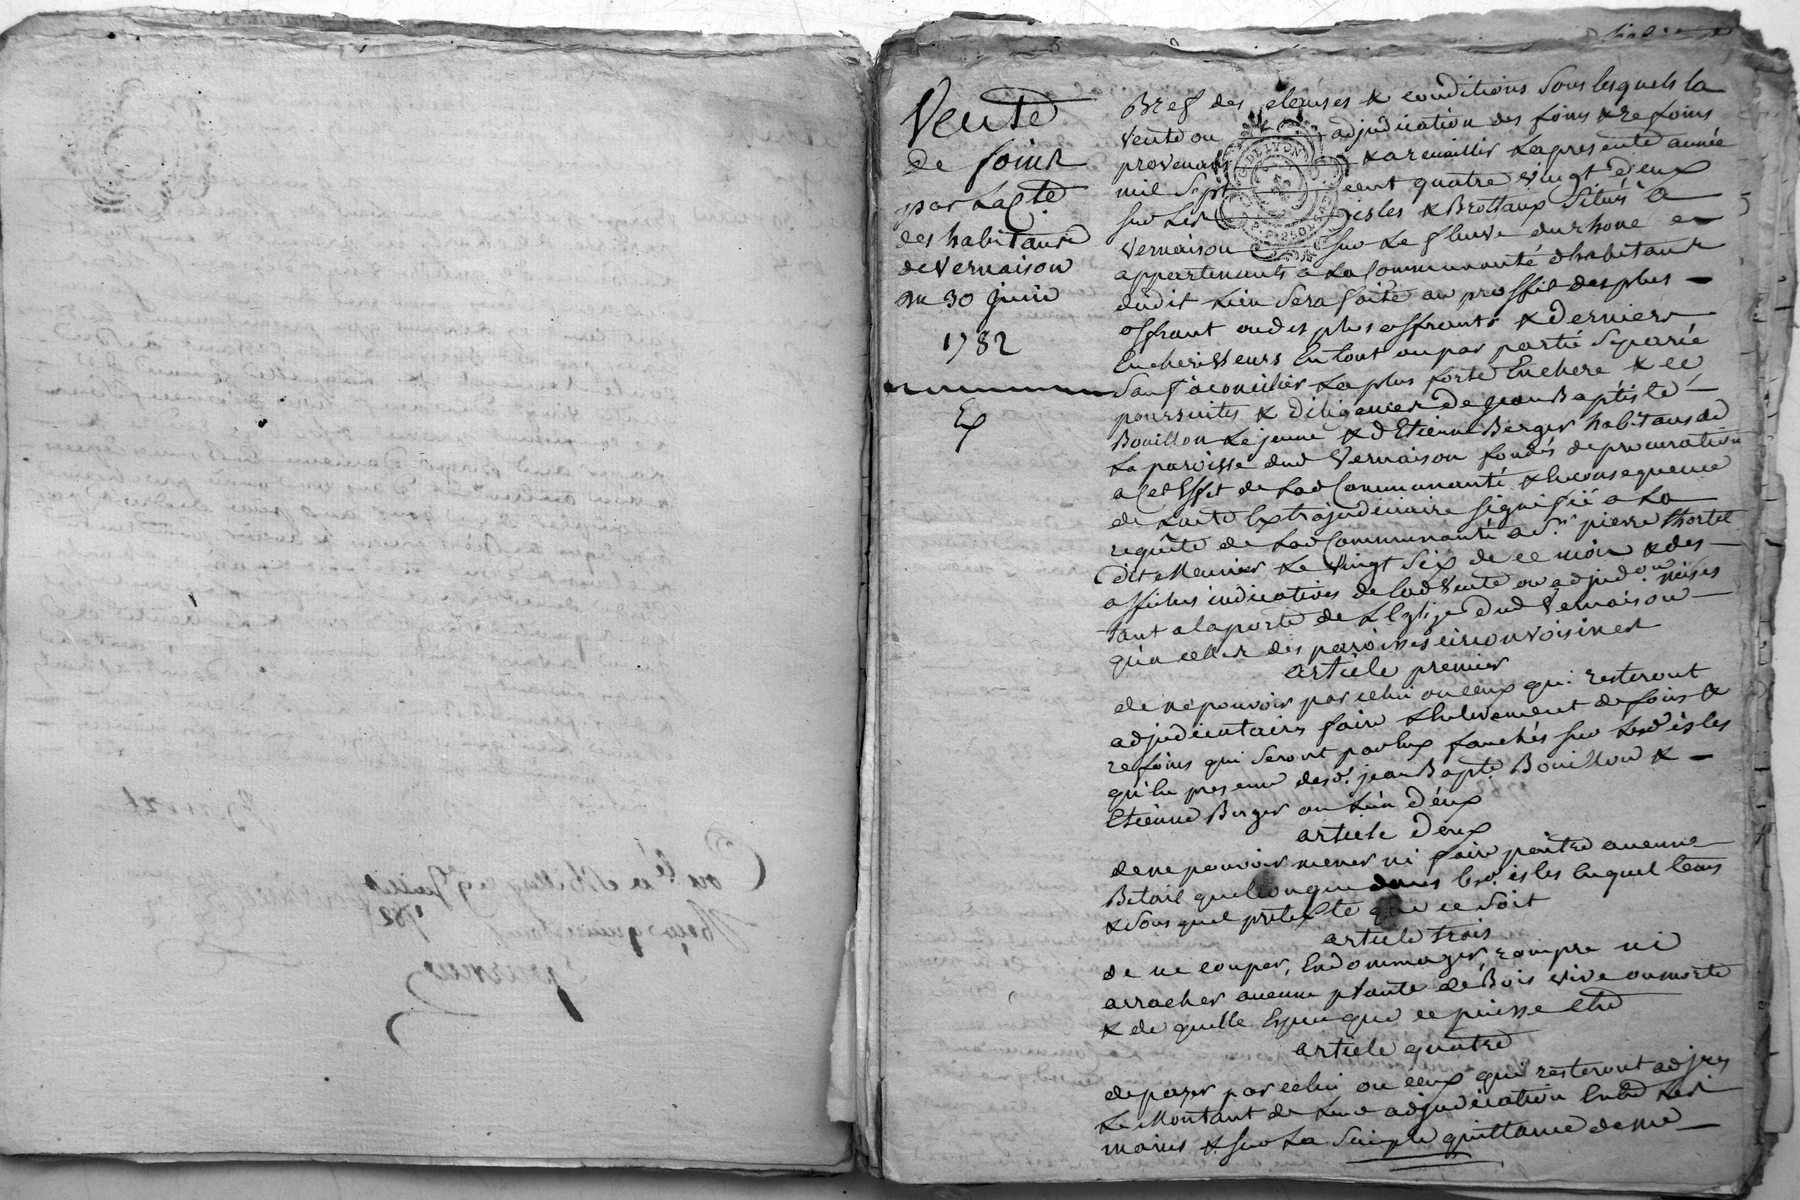 Vente
de foins
par La Cté
des habitans
de Vernaison
Du 30 Juin
1782
Ex
Bref des clauses & conditions sous lesquels la
vente ou adjudication des foins & refoins
provenants & a recueillir La presente année
mil sept cent quatre vingt deux
sur Les isles & Brottaux situés a
Vernaison sur Le fleuve du rhone &
appartenants a La Communauté d'habitans
dudit Lieu sera faite au proffit des plus
offrant ou des plus offrants & derniers
Encherisseurs En tout ou par partie séparée
sauf a concilier La plus forte Enchere & ce
poursuites & diligences de jean Baptiste
Bouillon Le jeune & d'Etienne Berger habitans de
La paroisse dud Vernaison fondés de procuration
a Cet Effet de Lad Communauté & En consequence
de L'acte Extrajudiciaire signifié a La
requête de Lad Communauté a Sr. pierre thortel
dit Meunier Le vingt six de ce mois & des
affiches indicatives de Lad vente ou adjudon mises
tant a la porte de L'Eglise dud Vernaison
qu'a celles des paroisses circonvoisines
article premier
de ne pouvoir par celui ou ceux qui resteront
adjudicataires faire L'Enlevement de foins &
refoins qui seront par Eux fauchés sur Lesd isles
qu'En presence desd. jean Bapte. Bouillon &
Etienne Berger ou L'un d'eux
article deux
de ne pouvoir mener ni faire paitre aucune
Betail quelconque dans lesd. isles En quel tems
& sous quel pretexte que ce soit
article trois
de ne couper, Endommager, rompre ni
arracher aucune plante de Bois vive ou morte
& de quelle Espece que ce puisse etre
article quatre
de payer par celui ou ceux qui resteront adjres
Le Montant de Leur adjudication Entre Les
mains & sur La simple quittance de me